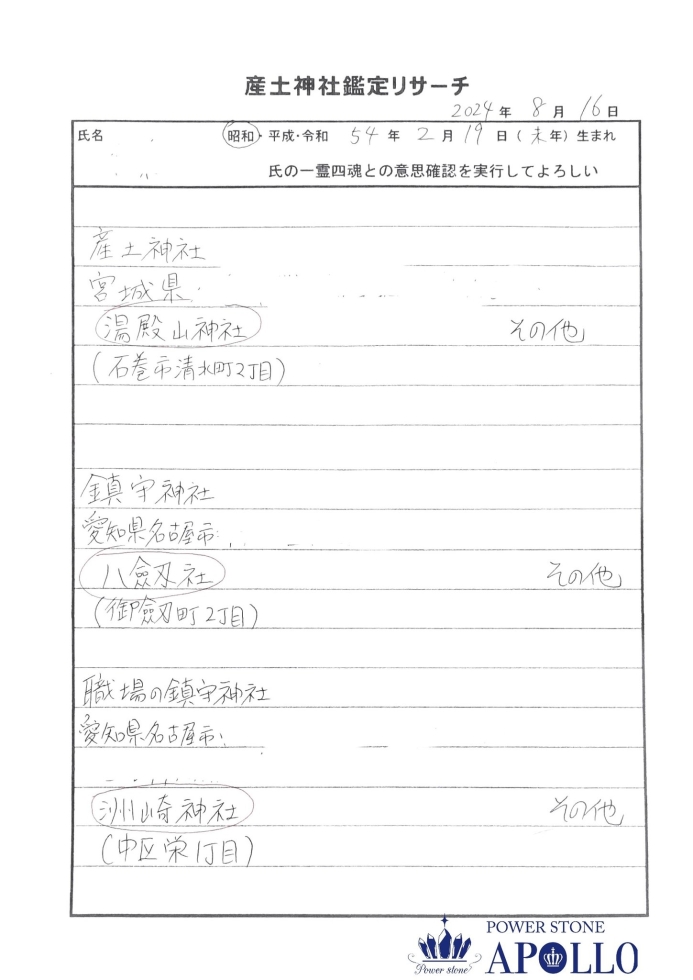 産土神社鑑定リサーチ
2024年 8月 16日
氏名 昭和・平成・令和 54年 2月 19日(未年)生まれ
氏の一霊四魂との意思確認を実行してよろしい
産土神社
宮城県
湯殿山神社 その他
(石巻市清水町2丁目)
鎮守神社
愛知県名古屋市
八劔社 その他
(御劔町2丁目)
職場の鎮守神社
愛知県名古屋市
洲崎神社 その他
(中区栄1丁目)
POWER STONE
APOLLO
Power stone